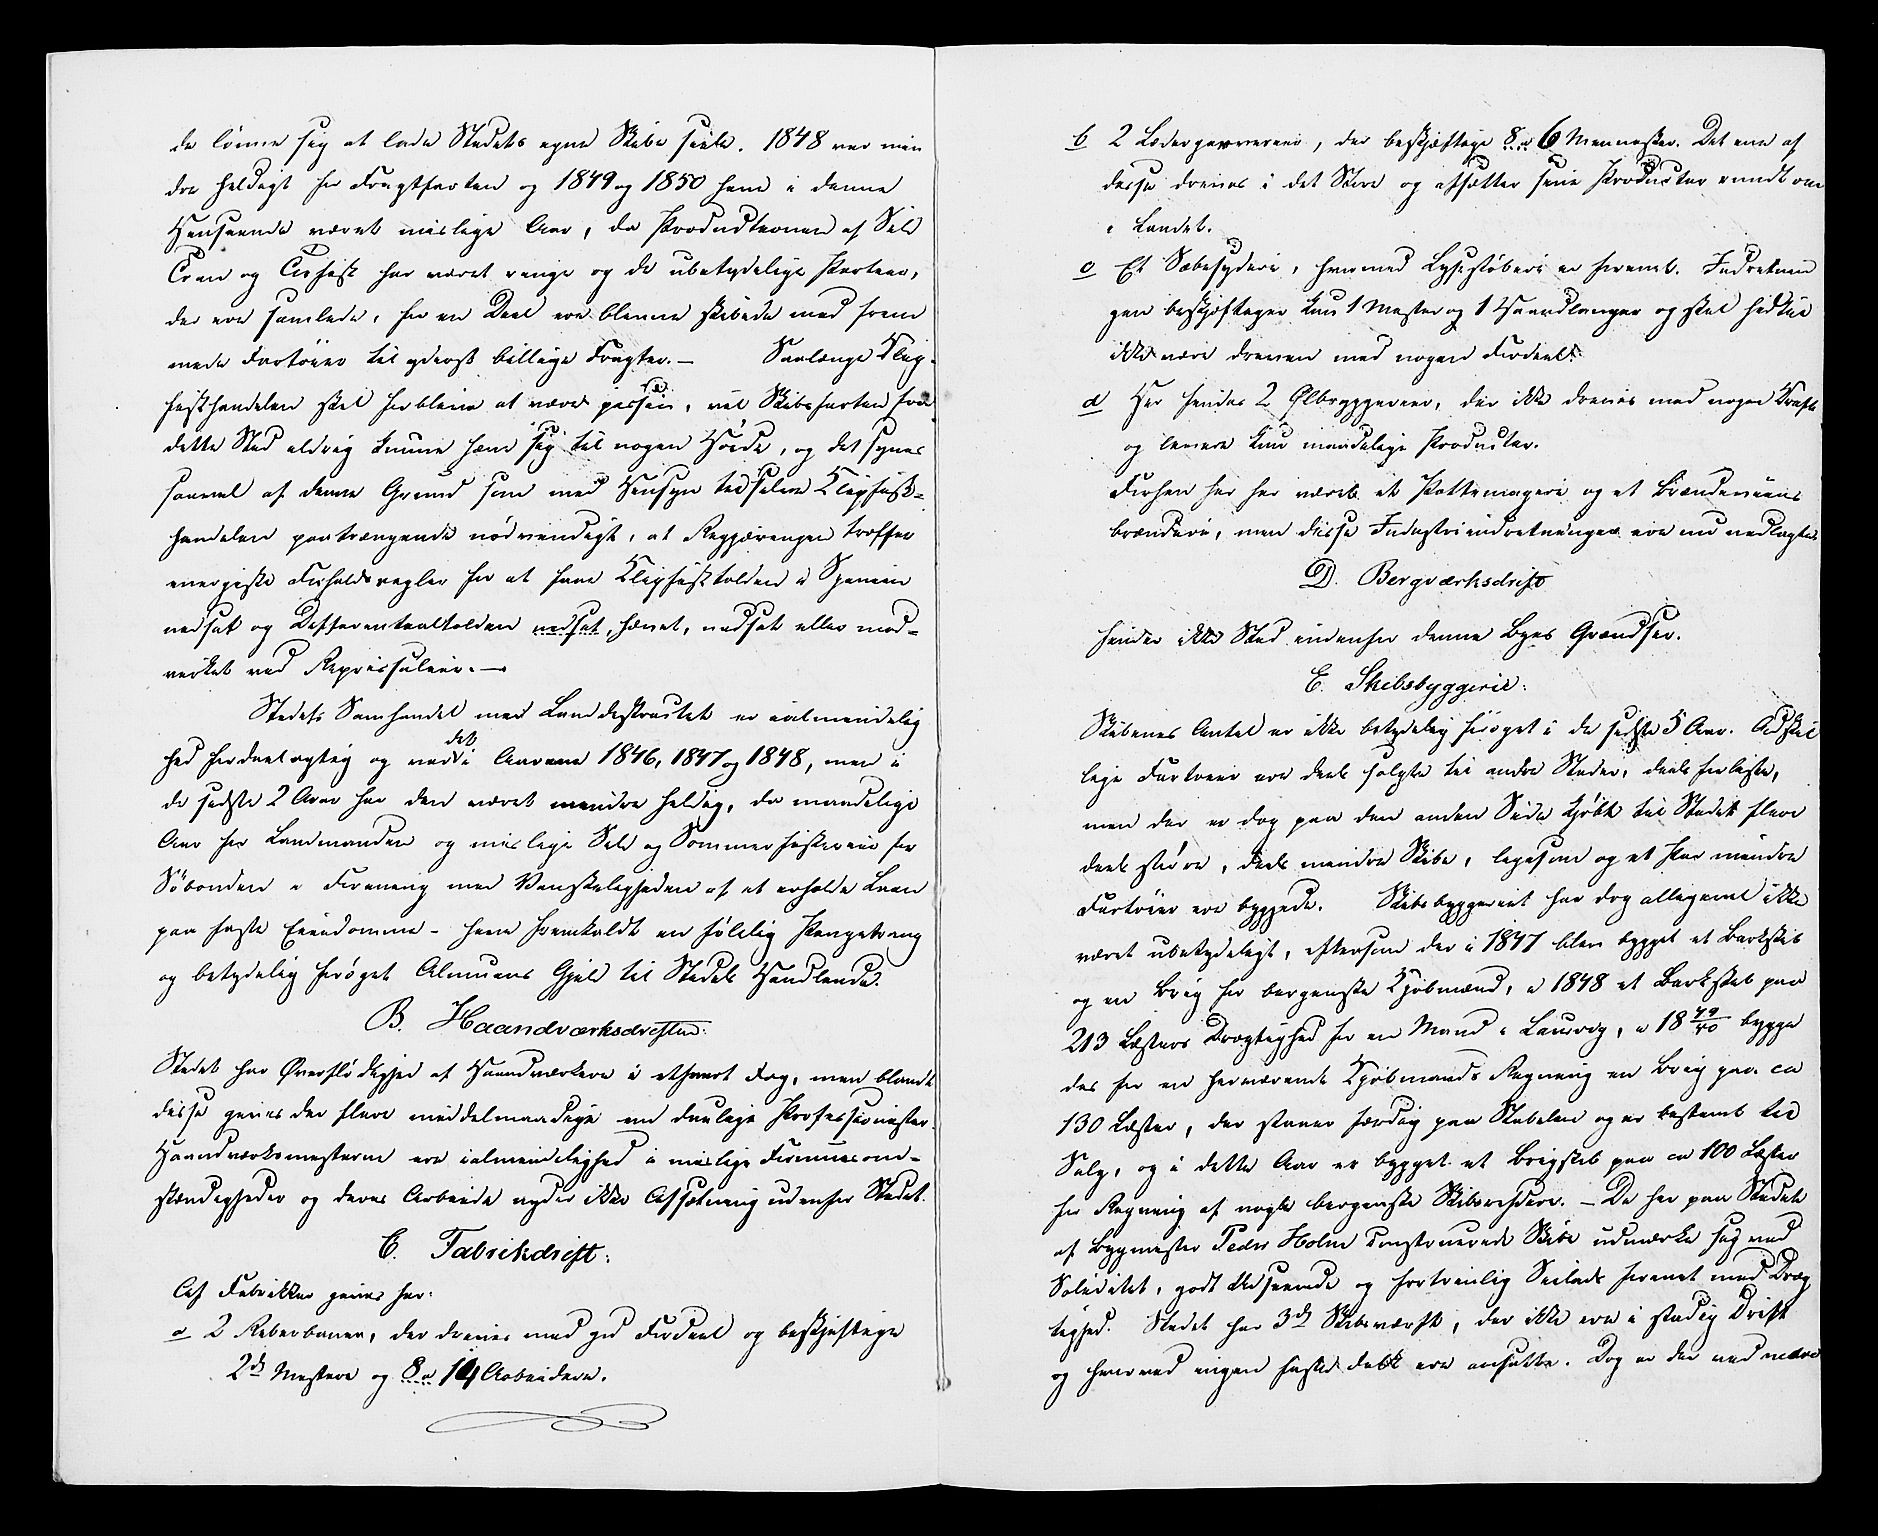 de lönne sig at lade Stedets egne Skibe seile. 1848 var min
dre heldigt for Fragtfarten og 1849 og 1850 have i denne
Henseende været mislige Aar, da Productionen af Sild
Tran og Torfisk har været ringe og de ubetydelige Partier,
der ere samlede, for en Deel ere blevne skibede med frem
mede Fartöier til yderst billige Fragter. — Saalænge Klip-
fiskhandelen skal forblive at være passiv, vil Skibsfarten fra
dette Sted aldrig kunne hæve sig til nogen Höide, og det synes
saavel af denne Grund som med Hensyn til selve Klipfisk-
handelen paatrængende nödvendigt, at Regjæringen træffer
energiske Forholdsregler for at faae Klipfisktolden i Spanien
nedsat og Differentialtolden nedsat, hævet, nedsat eller mod-
virket ved Repressalier. —
Stedets Samhandel med Landdistriktet er i almindelig
hed fordeelagtig og var det i Aarene 1846, 1847 og 1848, men i
de sidste 2 Aar har den været mindre heldig, da maadelige
Aar for Landmanden og mislige Sild og Sommerfiskerier for
Söbonden i Forening med Vanskeligheden af at erholde Laan
paa faste Eiendomme - have fremkaldt en fölelig Pengetrang
og betydelig forøget Almuens Gjeld til Stedets Handlende.
B. Haandværksdriften:
Stedet har Overflödighed af Haandværkere i ethvert Fag, men blandt
disse gives der flere middelmaadige end duelige Professionister.
Haandværksmesterne ere i almindelighed i mislige Formuesom-
stændigheder og deres Arbeide nyder ikke Afsætning udenfor Stedet.
C. Fabrikdrift:
Af Fabrikker gives her:
a 2 Reberbaner, der drives med god Fordeel og beskjæftige
2de Mestere og 8 a 14 Arbeidere.
b 2 Lædergarverier, der beskjæftige 8 a 6 Mennesker. Det ene af
disse drives i det Store og afsætter sine Producter rundt om
i Landet.
c Et Sæbesyderi, hvormed Lysestøberi er forenet. Indretnin
gen beskjæftiger kun 1 Mester og 1 Haandlanger og skal hidtil
ikke være dreven med nogen Fordeel.
d Her findes 2 Ølbryggerier, der ikke drives med nogen Kraft
og levere kun maadelige Producter.
Forhen har her været et Pottemageri og et Brændeviins
brænderi, men disse Industriindretninger ere nu nedlagte.
D. Bergværksdrift
finder ikke Sted indenfor denne Byes Grændser.
E. Skibsbyggerie:
Skibenes Antal er ikke betydelig forøget i de sidste 5 Aar. Adskil
lige Fartöier ere deels solgte til andre Steder, deels forliste,
men der er dog paa den anden Side kjøbt til Stedet flere
deels större, deels mindre Skibe, ligesom og et Par mindre
Fartöier ere byggede. Skibsbyggeriet har dog alligevel ikke
været ubetydeligt, eftersom der i 1847 blev bygget et Barkskib
og en Brig for bergenske Kjøbmænd, i 1848 et Barkskib paa
213 Læsters Drægtighed for en Mand i Laurvig, i 18 49/50 bygge
des for en herværende Kjøbmands Regning en Brig paa ca
130 Læster, der staaer færdig paa Stabelen og er bestemt til
Salg, og i dette Aar er bygget et Brigskib paa ca 100 Læster
for Regning af nogle bergenske Skibsredere. — De her paa Stedet
af Bygmester Peder Holm construerede Skibe udmærke sig ved
Soliditet, godt Udseende og fortrinlig Seilads forenet med Dræg
tighed. Stedet har 3de Skibsværft, der ikke ere i stadig Drift
og hvorved ingen faste Folk ere ansatte. Dog er der ved nære